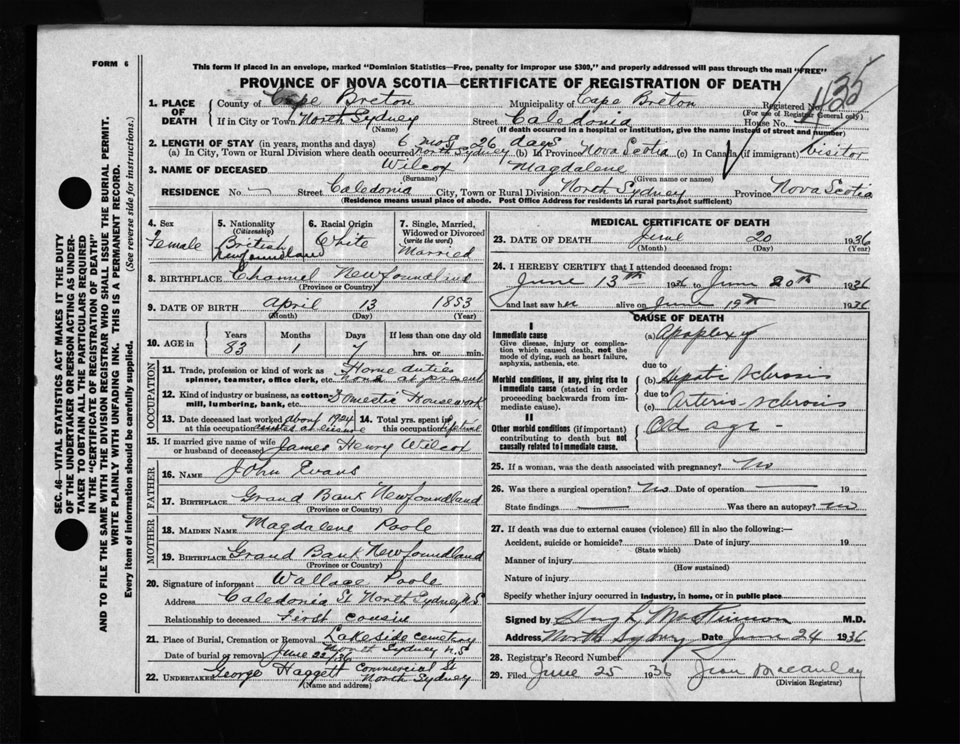 FORM 6
This form if placed in an envelope, marked "Dominion Statistics—Free, penalty for improper use $300," and properly addressed will pass through the mail "FREE"
PROVINCE OF NOVA SCOTIA—CERTIFICATE OF REGISTRATION OF DEATH
1. PLACE OF DEATH County of Cape Breton Municipality of Cape Breton Registered No.
(For use of Registrar General only)
If in City or Town North Sydney Street Caledonia House No.
(Name) (If death occurred in a hospital or institution, give the name instead of street and number)
2. LENGTH OF STAY (in years, months and days) 6 mos 26 days
(a) In City, Town or Rural Division where death occurred North Sydney (b) In Province Nova Scotia (c) In Canada (if immigrant) Visitor
3. NAME OF DECEASED Wilcox Magdalene
(Surname) (Given name or names)
RESIDENCE No. — Street Caledonia City, Town or Rural Division North Sydney Province Nova Scotia
(Residence means usual place of abode. Post Office Address for residents in rural parts, not sufficient)
4. Sex Female
5. Nationality (Citizenship) British Newfoundland
6. Racial Origin White
7. Single, Married, Widowed or Divorced (write the word) Married
8. BIRTHPLACE Channel Newfoundland
(Province or Country)
9. DATE OF BIRTH April 13 1853
(Month) (Day) (Year)
10. AGE in Years 83 Months 1 Days 7 If less than one day old
hrs. or min.
OCCUPATION
11. Trade, profession or kind of work as spinner, teamster, office clerk, etc. Home duties None at present
12. Kind of industry or business, as cotton mill, lumbering, bank, etc. Domestic Housework
13. Date deceased last worked at this occupation about 1924
14. Total yrs. spent in this occupation lifetime
15. If married give name of wife or husband of deceased James Henry Wilcox
FATHER
16. NAME John Evans
17. BIRTHPLACE Grand Bank Newfoundland
(Province or Country)
MOTHER
18. MAIDEN NAME Magdalene Poole
19. BIRTHPLACE Grand Bank Newfoundland
(Province or Country)
20. Signature of informant Wallace Poole
Address Caledonia St North Sydney N.S
Relationship to deceased First cousin
21. Place of Burial, Cremation or Removal Lakeside cemetery North Sydney N.S
Date of burial or removal June 22/36
22. UNDERTAKER George Haggett Commercial St North Sydney
(Name and address)
MEDICAL CERTIFICATE OF DEATH
23. DATE OF DEATH June 20 1936
(Month) (Day) (Year)
24. I HEREBY CERTIFY that I attended deceased from:
June 13th 1936 to June 20th 1936
and last saw her alive on June 19th 1936
CAUSE OF DEATH
I
Immediate cause
Give disease, injury or complication which caused death, not the mode of dying, such as heart failure, asphyxia, asthenia, etc.
(a) Apoplexy
due to
Morbid conditions, if any, giving rise to immediate cause (stated in order proceeding backwards from immediate cause).
(b) Hepatic Sclerosis
due to
(c) Arterio-sclerosis
II
Other morbid conditions (if important) contributing to death but not causally related to immediate cause.
Old age -
25. If a woman, was the death associated with pregnancy? No
26. Was there a surgical operation? No Date of operation — 19
State findings — Was there an autopsy? no
27. If death was due to external causes (violence) fill in also the following:—
Accident, suicide or homicide? Date of injury 19
(State which)
Manner of injury
(How sustained)
Nature of injury
Specify whether injury occurred in industry, in home, or in public place
Signed by Hugh McKinnon M.D.
Address North Sydney Date June 24 1936
28. Registrar's Record Number
29. Filed June 25 1936 Jean Macaulay
(Division Registrar)
SEC. 46—VITAL STATISTICS ACT MAKES IT THE DUTY
OF THE UNDERTAKER OR PERSON ACTING AS UNDER-
TAKER TO OBTAIN ALL THE PARTICULARS REQUIRED
IN THE "CERTIFICATE OF REGISTRATION OF DEATH"
AND TO FILE THE SAME WITH THE DIVISION REGISTRAR WHO SHALL ISSUE THE BURIAL PERMIT.
WRITE PLAINLY WITH UNFADING INK. THIS IS A PERMANENT RECORD.
Every item of information should be carefully supplied. (See reverse side for instructions.)